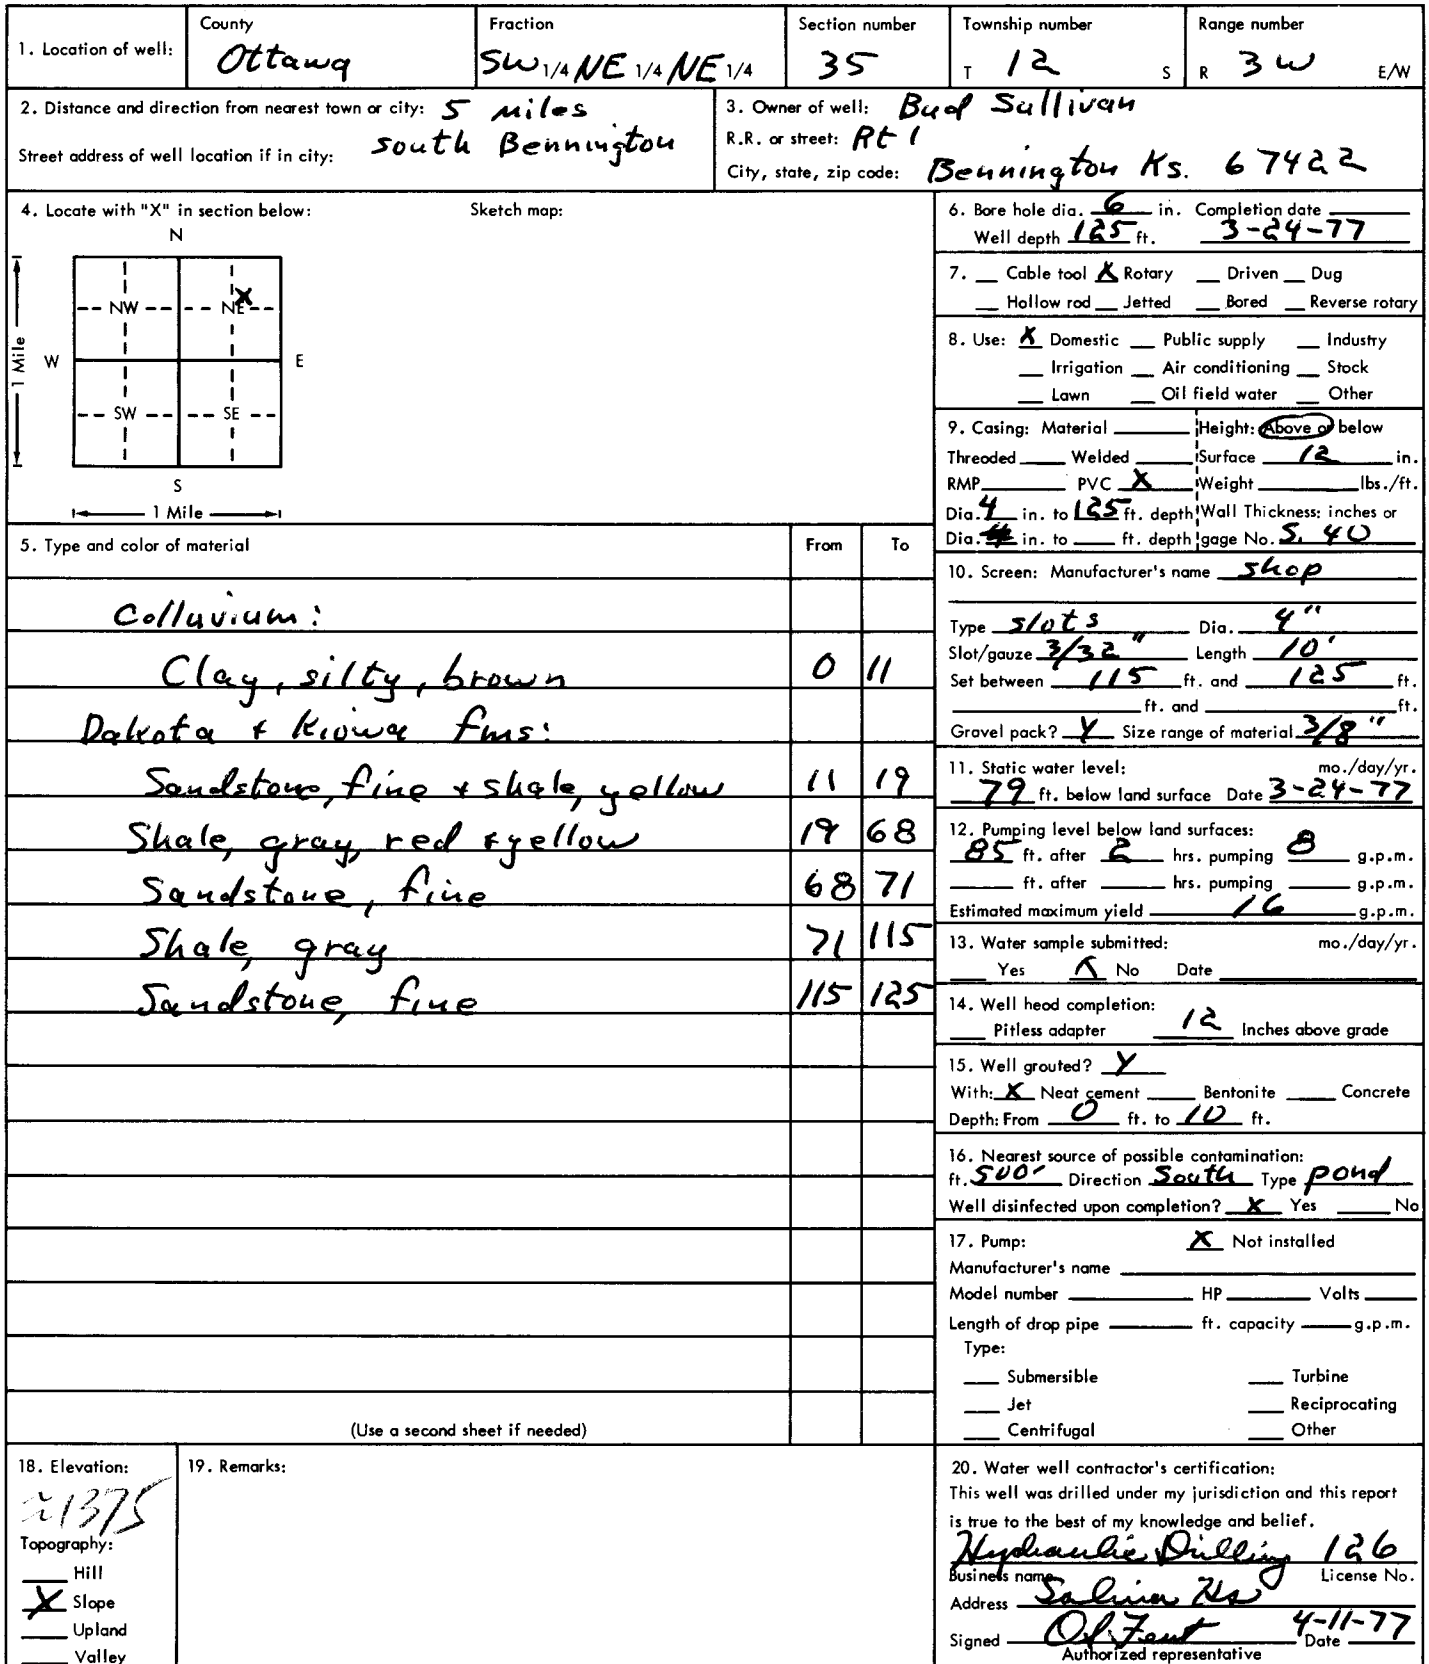 1. Location of well:
County
Ottawa
Fraction
SW 1/4 NE 1/4 NE 1/4
Section number
35
Township number
T 12 S
Range number
R 3 W E/W
2. Distance and direction from nearest town or city: 5 miles
south Bennington
Street address of well location if in city:
3. Owner of well: Bud Sullivan
R.R. or street: Rt 1
City, state, zip code: Bennington Ks. 67422
4. Locate with "X" in section below:
Sketch map:
N
NW NE X
W E
1 Mile
SW SE
S
1 Mile
5. Type and color of material From To
Colluvium:
Clay, silty, brown 0 11
Dakota + Kiowa fms:
Sandstone, fine + shale, yellow 11 19
Shale, gray, red + yellow 19 68
Sandstone, fine 68 71
Shale, gray 71 115
Sandstone, fine 115 125
(Use a second sheet if needed)
6. Bore hole dia. 6 in. Completion date
Well depth 125 ft. 3-24-77
7. Cable tool X Rotary Driven Dug
Hollow rod Jetted Bored Reverse rotary
8. Use: X Domestic Public supply Industry
Irrigation Air conditioning Stock
Lawn Oil field water Other
9. Casing: Material Height: Above or below
Threaded Welded Surface 12 in.
RMP PVC X Weight lbs./ft.
Dia. 4 in. to 125 ft. depth Wall Thickness: inches or
Dia. in. to ft. depth gage No. S. 40
10. Screen: Manufacturer's name shop
Type slots Dia. 4"
Slot/gauze 3/32" Length 10'
Set between 115 ft. and 125 ft.
ft. and ft.
Gravel pack? Y Size range of material 3/8"
11. Static water level: mo./day/yr.
79 ft. below land surface Date 3-24-77
12. Pumping level below land surfaces:
85 ft. after 2 hrs. pumping 8 g.p.m.
ft. after hrs. pumping g.p.m.
Estimated maximum yield 16 g.p.m.
13. Water sample submitted: mo./day/yr.
Yes X No Date
14. Well head completion:
Pitless adapter 12 Inches above grade
15. Well grouted? Y
With: X Neat cement Bentonite Concrete
Depth: From 0 ft. to 10 ft.
16. Nearest source of possible contamination:
ft. 500' Direction South Type pond
Well disinfected upon completion? X Yes No
17. Pump: X Not installed
Manufacturer's name
Model number HP Volts
Length of drop pipe ft. capacity g.p.m.
Type:
Submersible Turbine
Jet Reciprocating
Centrifugal Other
18. Elevation:
≈1375
Topography:
Hill
X Slope
Upland
Valley
19. Remarks:
20. Water well contractor's certification:
This well was drilled under my jurisdiction and this report
is true to the best of my knowledge and belief.
Hydraulic Drilling 126
Business name License No.
Address Salina Ks
Signed Date 4-11-77
Authorized representative